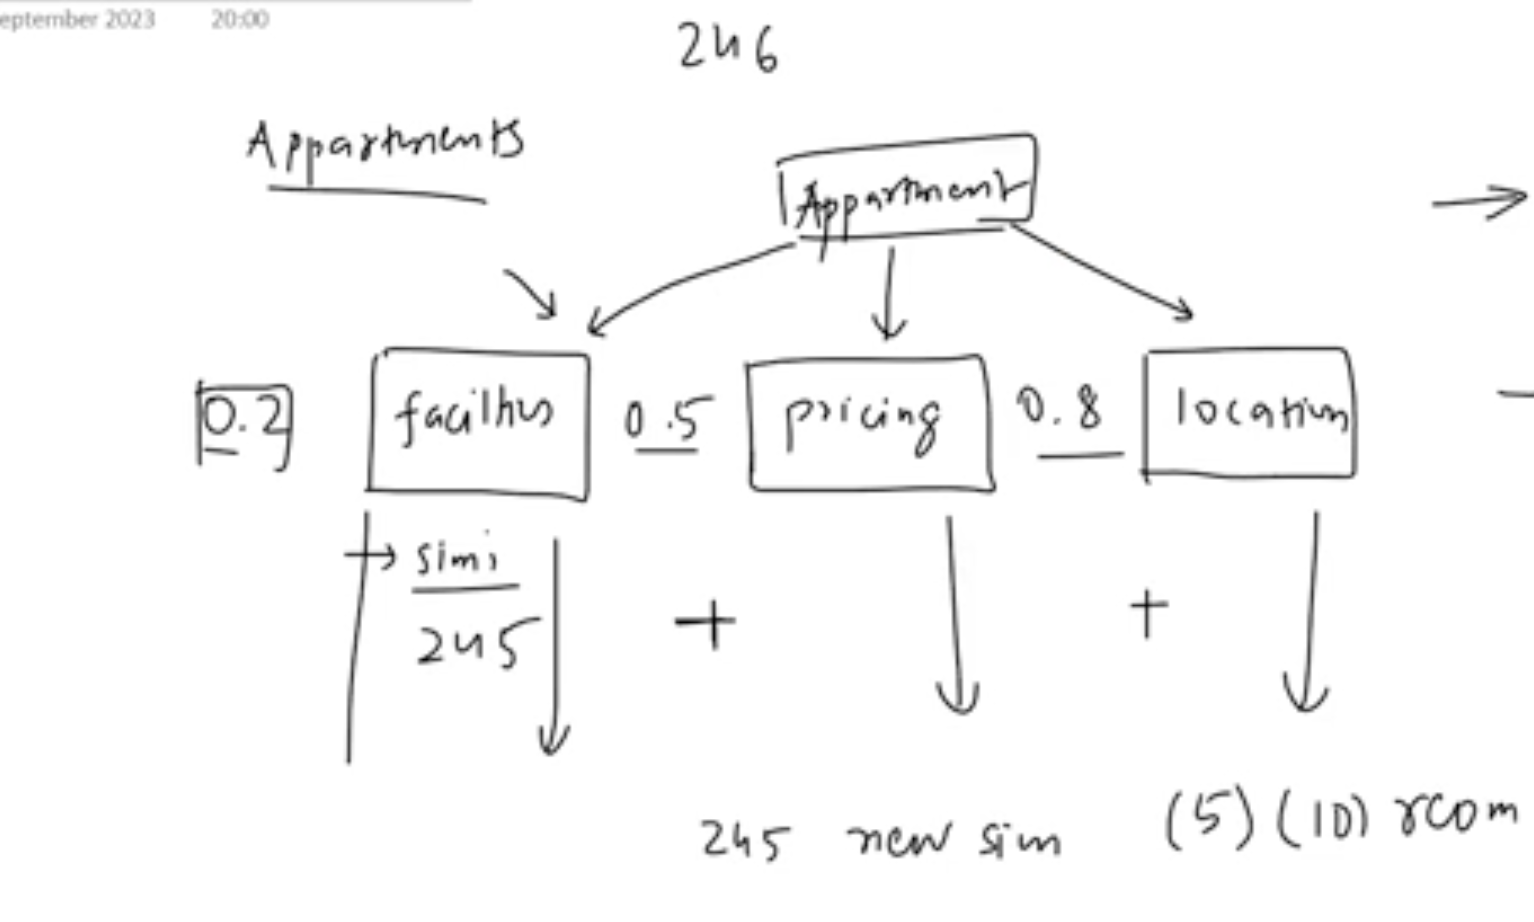 eptember 2023 20:00
246
Appartments
Appartment
0.2 facilities 0.5 pricing 0.8 location
simi
245
+ +
245 new sim (5) (10) rcom